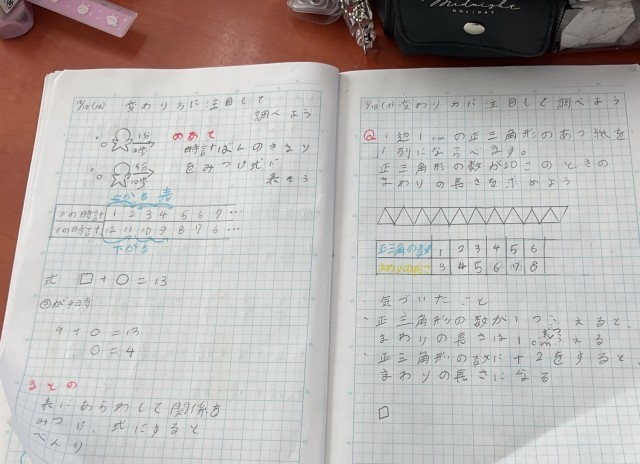 Midnight
HOLIDAY
変わり方に注目して
調べよう
1分
2歩
めあて
5分
10歩
時計ばんのきまり
をみつけ式に
表そう
上がる 表
1 2 3 4 5 6 7 …
12 11 10 9 8 7 6 …
下がる
式 □+○=13
9+○=13
○=4
まとめ
表にあらわして関係を
みつけ、式にすると
べんり
変わり方に注目して調べよう
Q 1辺1cmの正三角形のあつ紙を
1列にならべます。
正三角形の数が20このときの
まわりの長さを求めよう
正三角の数 1 2 3 4 5 6
3 4 5 6 7 8
・気づいたこと
・正三角形の数が1つふえると、
まわりの長さは1cmずつふえる
・正三角形の数に+2をすると
まわりの長さになる
□